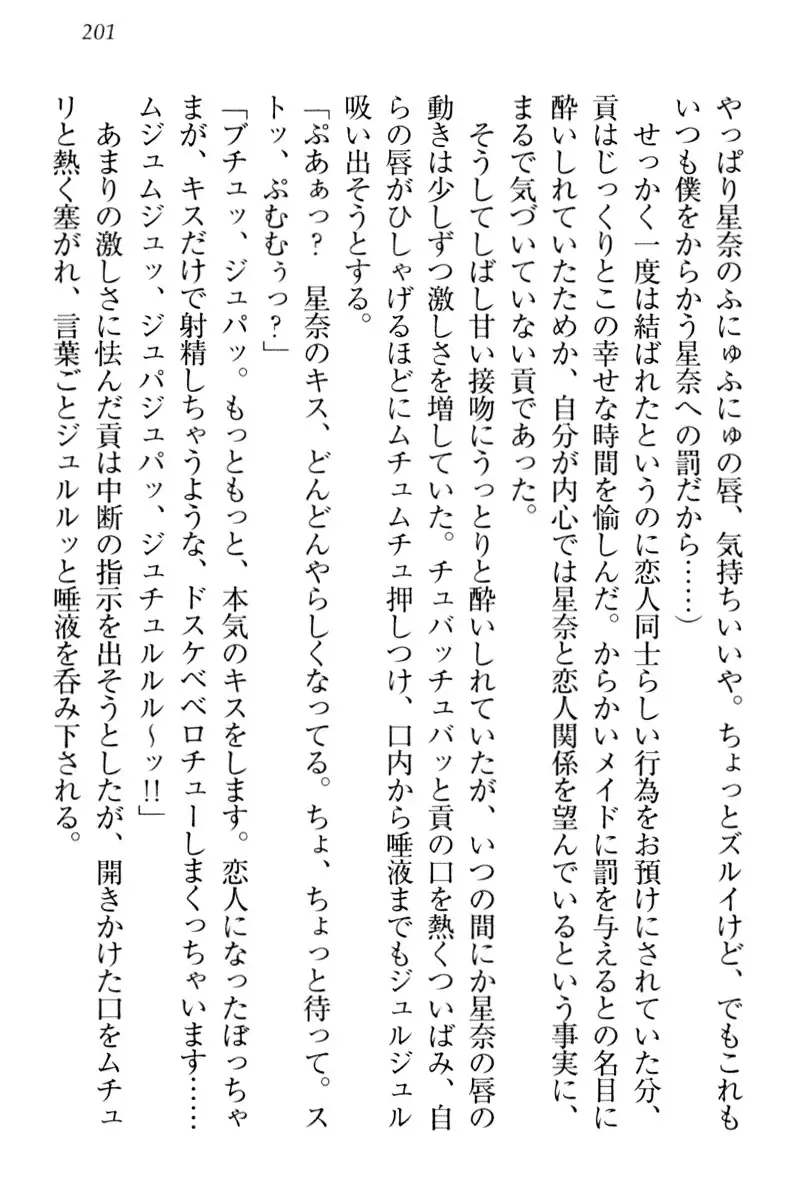 201
やっぱり星奈のふにゅふにゅの唇、気持ちいいや。ちょっとズルイけど、でもこれも
いつも僕をからかう星奈への罰だから……)
　せっかく一度は結ばれたというのに恋人同士らしい行為をお預けにされていた分、
貢はじっくりとこの幸せな時間を愉しんだ。からかいメイドに罰を与えるとの名目に
酔いしれていたためか、自分が内心では星奈と恋人関係を望んでいるという事実に、
まるで気づいていない貢であった。
　そうしてしばし甘い接吻にうっとりと酔いしれていたが、いつの間にか星奈の唇の
動きは少しずつ激しさを増していた。チュバッチュバッと貢の口を熱くついばみ、自
らの唇がひしゃげるほどにムチュムチュ押しつけ、口内から唾液までもジュルジュル
吸い出そうとする。
「ぷあぁっ?　星奈のキス、どんどんやらしくなってる。ちょ、ちょっと待って。ス
トッ、ぷむむぅっ?」
「ブチュッ、ジュパッ。もっともっと、本気のキスをします。恋人になったぼっちゃ
まが、キスだけで射精しちゃうような、ドスケベベロチューしまくっちゃいます……
ムジュムジュッ、ジュパジュパッ、ジュチュルルル～ッ!!」
　あまりの激しさに怯んだ貢は中断の指示を出そうとしたが、開きかけた口をムチュ
リと熱く塞がれ、言葉ごとジュルルッと唾液を呑み下される。